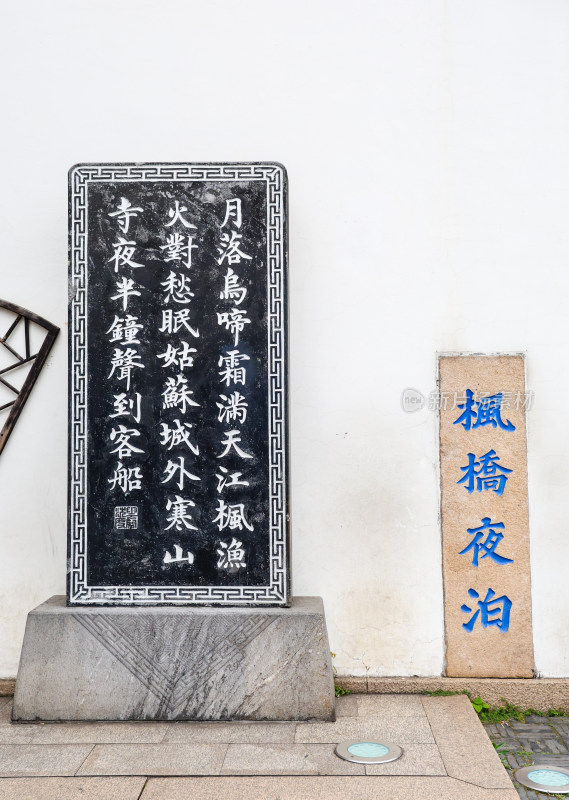 月落烏啼霜滿天江楓漁
火對愁眠姑蘇城外寒山
寺夜半鐘聲到客船
楓橋夜泊
新图网